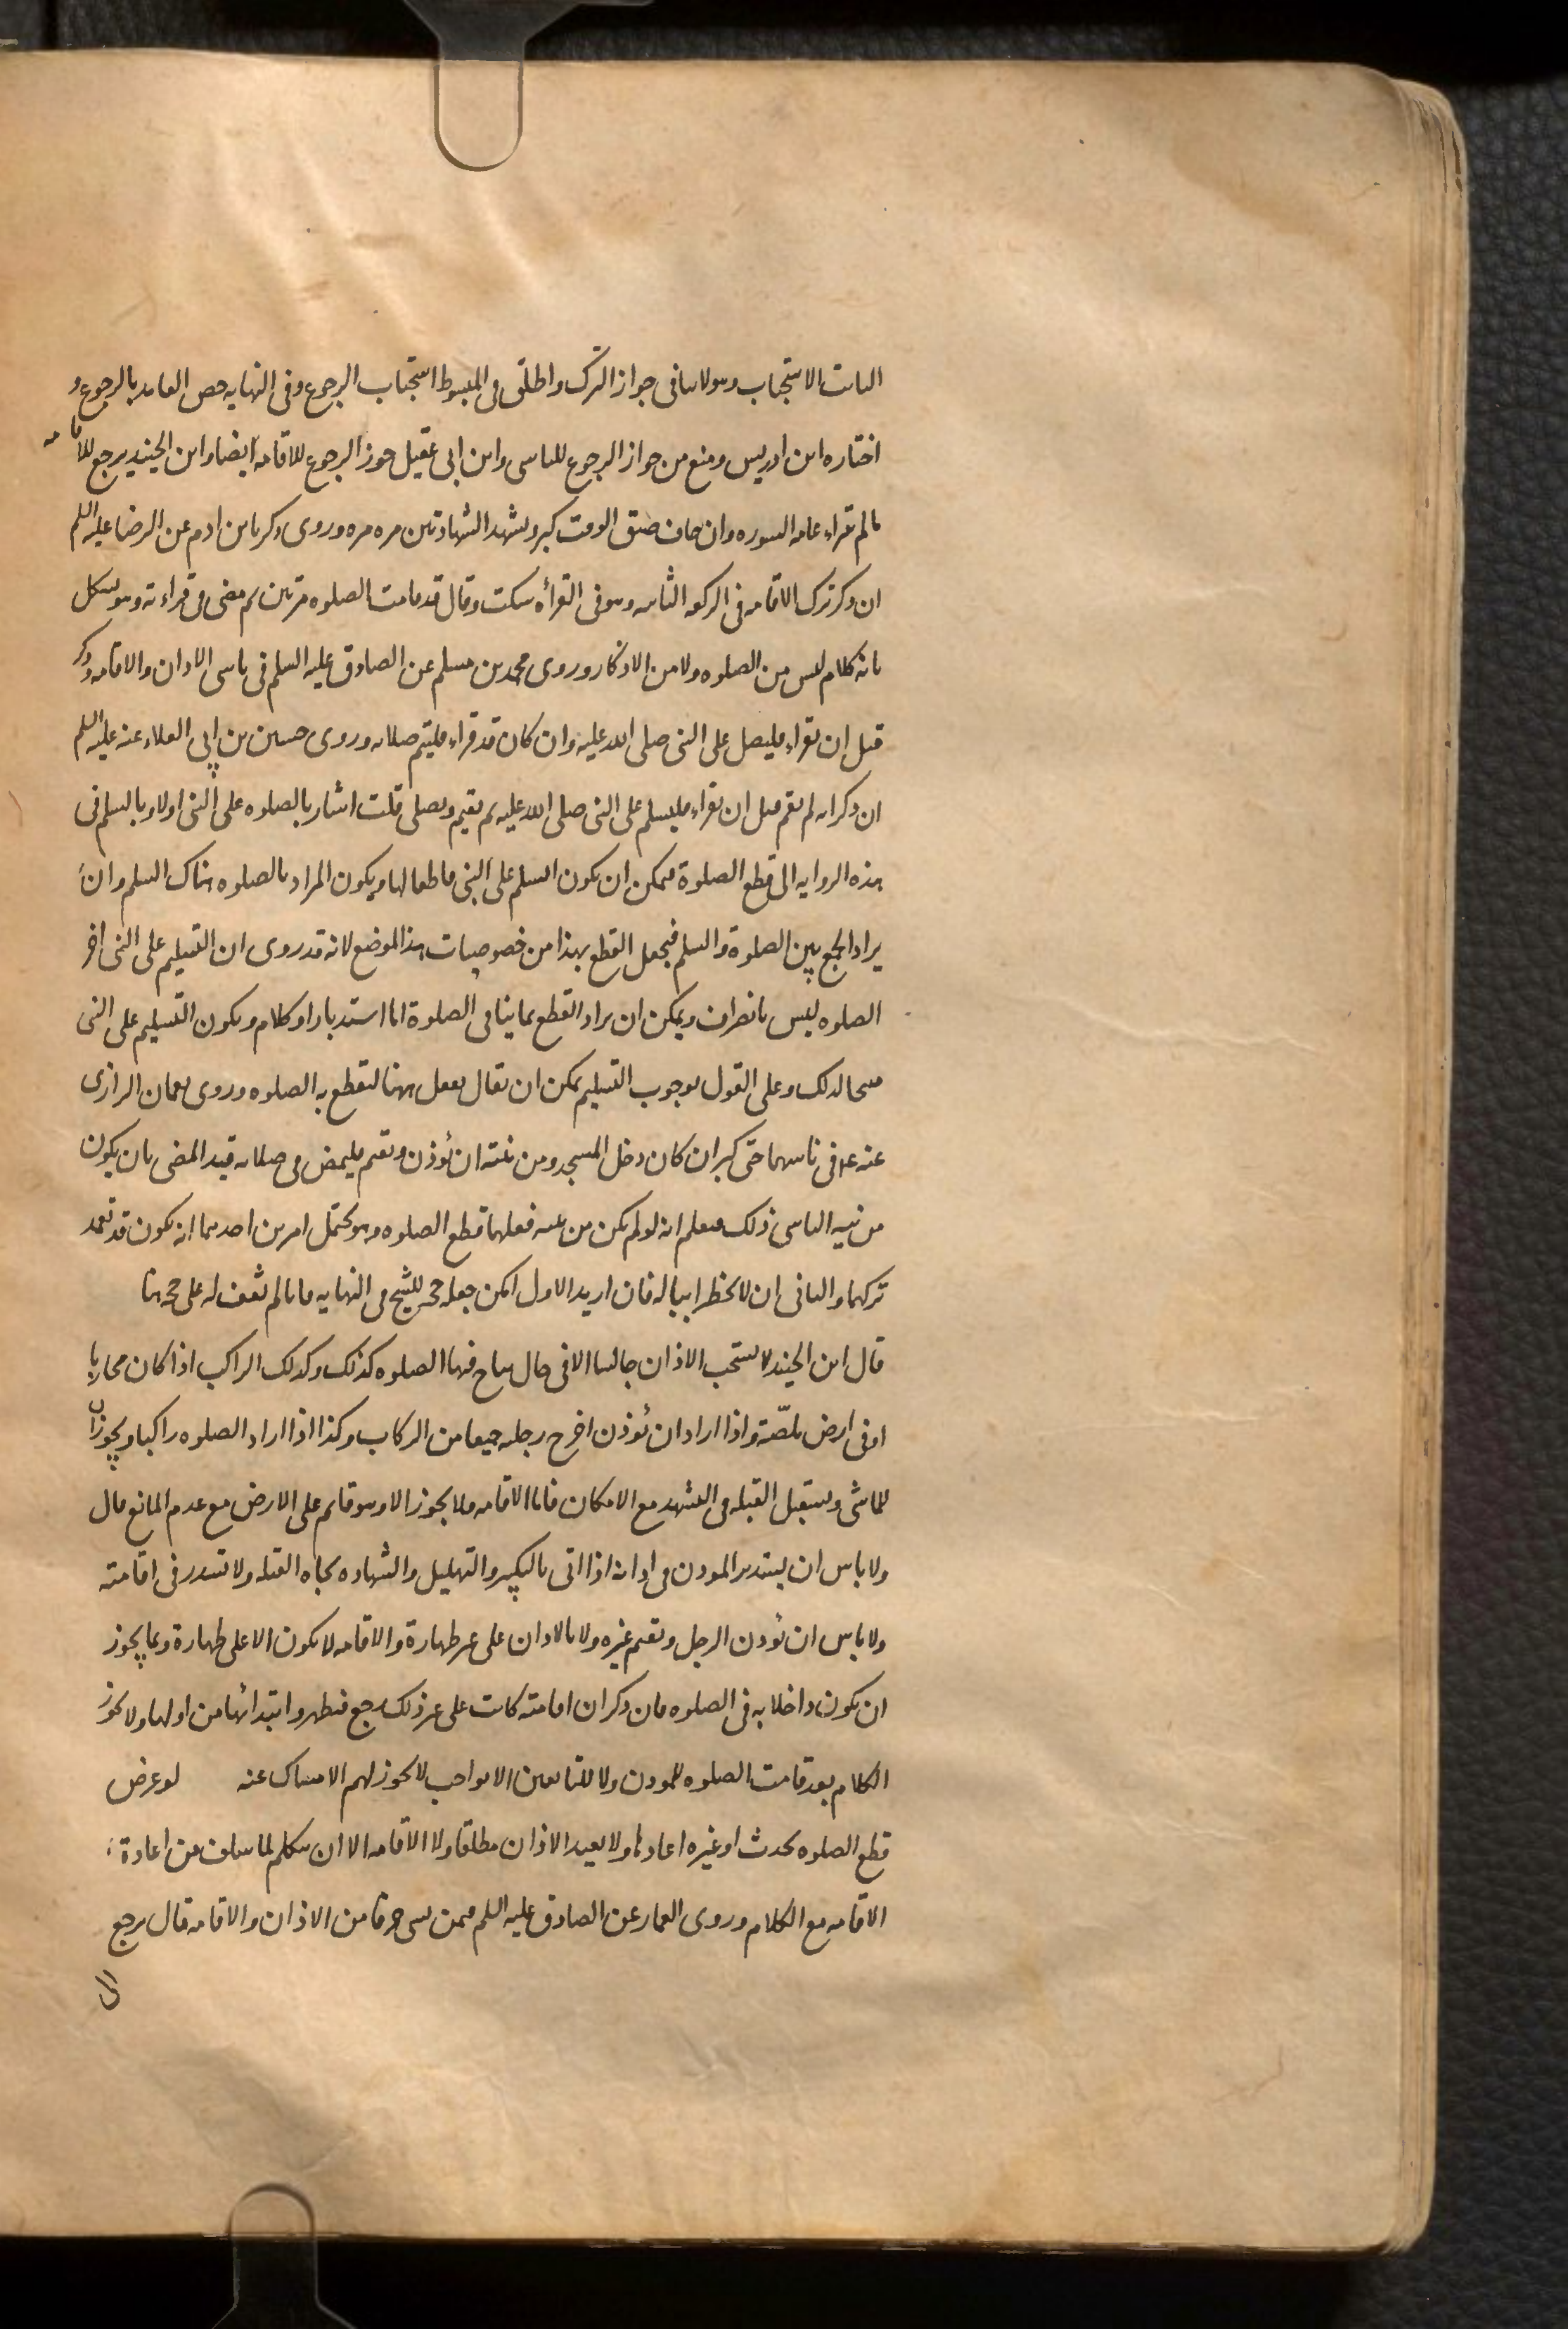 الثابت الاستحباب وهو لا ينافى جواز الترك واطلق فى المبسوط استحباب الرجوع وفى النهايه خص العامد بالرجوع و
اختاره ابن ادريس ومنع من جواز الرجوع للناسى وابن ابى عقيل جوز الرجوع للاقامه ايضا وابن الجنيد يرجع للاقامه
ما لم يقراء عامه السوره وان خاف ضيق الوقت كبر وتشهد الشهادتين مره مره وروى زكريا بن ادم عن الرضا عليه السلم
ان ذكر ترك الاقامه فى الركعه الثانيه وهو فى القرأه سكت وقال قد قامت الصلوه مرتين ثم مضى فى قراءته وهو يشكل
بانه كلام ليس من الصلوه ولا من الاذكار وروى محمد بن مسلم عن الصادق عليه السلم فى ناسى الاذان والاقامه وذكر
قبل ان يقراء فليصل على النبى صلى الله عليه وان كان قد قراء فليتم صلاته وروى حسين بن ابى العلاء عنه عليه السلم
ان ذكر انه لم يقم قبل ان يقراء فليسلم على النبى صلى الله عليه ثم يقيم ويصلى قلت اشار بالصلوه على النبى اولا وبالسلم فى
هذه الروايه الى قطع الصلوة فيمكن ان يكون السلم على النبى قاطعا لها ويكون المراد بالصلوه هناك السلم وان
يراد الجمع بين الصلوة والسلم فيجعل القطع بهذا من خصوصيات هذا الموضع لانه قد روى ان التسليم على النبى اخر
الصلوه ليس بانصراف ويمكن ان يراد القطع بما ينافى الصلوة اما استدبار او كلام ويكون التسليم على النبى
مبيحا لذلك وعلى القول بوجوب التسليم يمكن ان يقال يفعل ههنا ليقطع به الصلوه وروى نعمان الرازى
عنه ع فى ناسيهما حتى كبر ان كان دخل المسجد ومن نيته ان يؤذن ويقيم فليمض فى صلاته قيد المضى بان يكون
من نيه الناسى ذلك فيعلم انه لو لم يكن من نيته فعلهما قطع الصلوه وهو يحتمل امرين احدهما انه يكون قد تعمد
تركهما والثانى ان لا يخطرا بباله فان اريد الاول امكن جعله حجه للشيخ فى النهايه فانا لم نقف له على حجه هنا
قال ابن الجنيد لا يستحب الاذان جالسا الا فى حال يباح فيها الصلوه كذلك وكذلك الراكب اذا كان محاربا
او فى ارض ملصّة واذا اراد ان يؤذن اخرج رجليه جميعا من الركاب وكذا اذا اراد الصلوه راكبا ويجوزان
للماشى ويستقبل القبله فى التشهد مع الامكان فاما الاقامه فلا يجوز الا وهو قائم على الارض مع عدم المانع قال
ولا باس ان يستدبر الموذن فى اذانه اذا اتى بالتكبير والتهليل والشهاده تجاه القبله ولا يستدبر فى اقامته
ولا باس ان يؤذن الرجل ويقيم غيره ولا بالاذان على غير طهارة والاقامه لا يكون الا على طهارة وبما يجوز
ان يكون داخلا به فى الصلوه فان ذكر ان اقامته كانت على غير ذلك رجع فتطهر وابتدائها من اولها ولا يجوز
الكلام بعد قد قامت الصلوه للموذن ولا للتابعين الا بواجب لا يجوز لهم الامساك عنه لو عرض
قطع الصلوه بحدث او غيره اعادها ولا يعيد الاذان مطلقا ولا الاقامه الا ان يتكلم لما سلف من اعادة
الاقامه مع الكلام وروى العمار عن الصادق عليه السلم فيمن نسى حرفا من الاذان والاقامه قال يرجع
الى